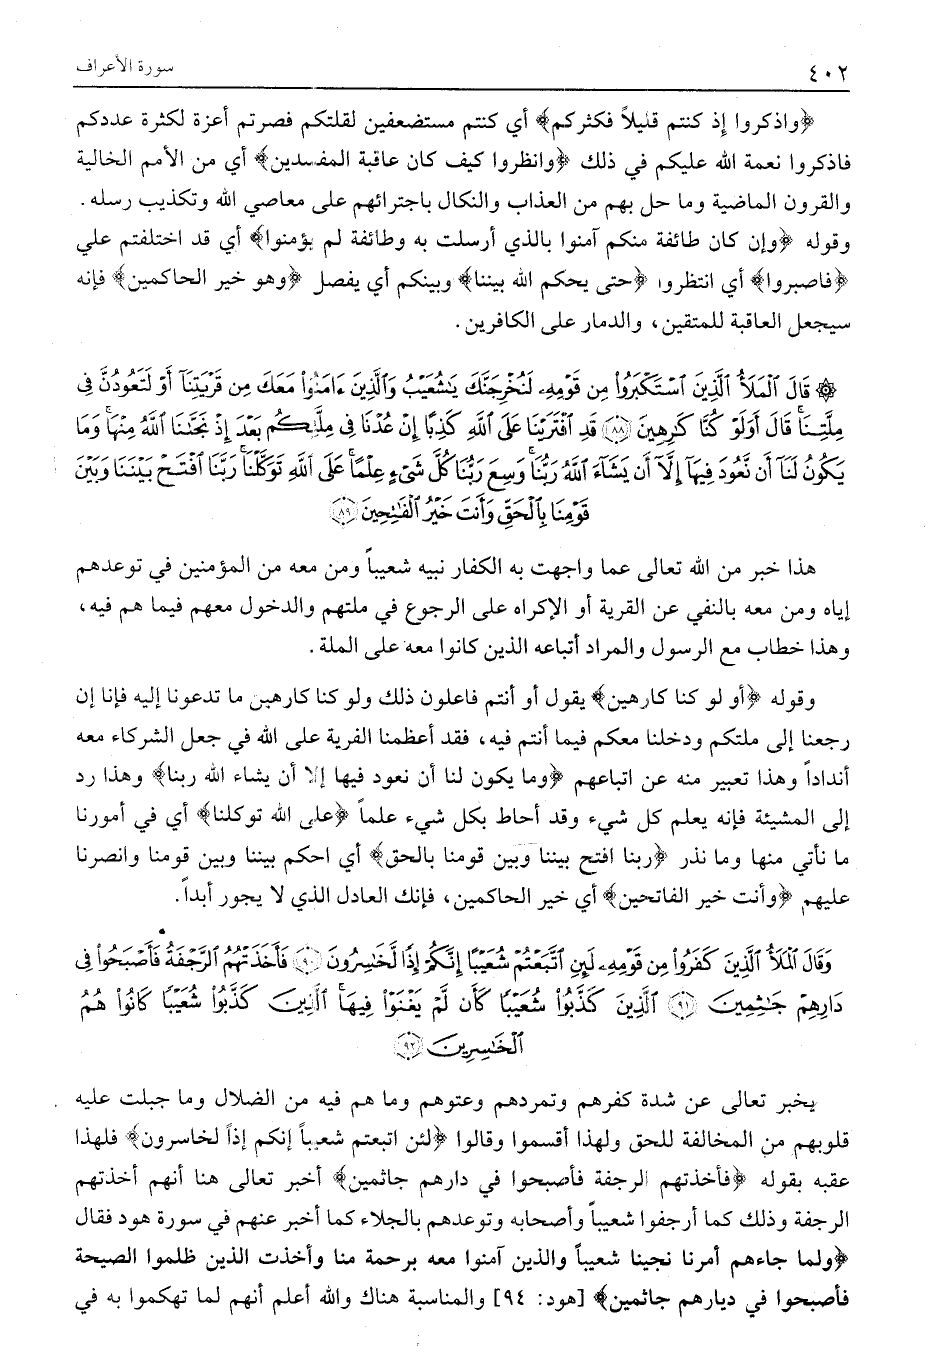 ٤٠٢ سورة الأعراف
﴿واذكروا إذ كنتم قليلاً فكثركم﴾ أي كنتم مستضعفين لقلتكم فصرتم أعزة لكثرة عددكم
فاذكروا نعمة الله عليكم في ذلك ﴿وانظروا كيف كان عاقبة المفسدين﴾ أي من الأمم الخالية
والقرون الماضية وما حل بهم من العذاب والنكال باجترائهم على معاصي الله وتكذيب رسله.
وقوله ﴿وإن كان طائفة منكم آمنوا بالذي أرسلت به وطائفة لم يؤمنوا﴾ أي قد اختلفتم علي
﴿فاصبروا﴾ أي انتظروا ﴿حتى يحكم الله بيننا﴾ وبينكم أي يفصل ﴿وهو خير الحاكمين﴾ فإنه
سيجعل العاقبة للمتقين، والدمار على الكافرين.
۞ قَالَ ٱلْمَلَأُ ٱلَّذِينَ ٱسْتَكْبَرُوا۟ مِن قَوْمِهِۦ لَنُخْرِجَنَّكَ يَـٰشُعَيْبُ وَٱلَّذِينَ ءَامَنُوا۟ مَعَكَ مِن قَرْيَتِنَآ أَوْ لَتَعُودُنَّ فِى
مِلَّتِنَا ۚ قَالَ أَوَلَوْ كُنَّا كَـٰرِهِينَ ﴿٨٨﴾ قَدِ ٱفْتَرَيْنَا عَلَى ٱللَّهِ كَذِبًا إِنْ عُدْنَا فِى مِلَّتِكُم بَعْدَ إِذْ نَجَّىٰنَا ٱللَّهُ مِنْهَا ۚ وَمَا
يَكُونُ لَنَآ أَن نَّعُودَ فِيهَآ إِلَّآ أَن يَشَآءَ ٱللَّهُ رَبُّنَا ۚ وَسِعَ رَبُّنَا كُلَّ شَىْءٍ عِلْمًا ۚ عَلَى ٱللَّهِ تَوَكَّلْنَا ۚ رَبَّنَا ٱفْتَحْ بَيْنَنَا وَبَيْنَ
قَوْمِنَا بِٱلْحَقِّ وَأَنتَ خَيْرُ ٱلْفَـٰتِحِينَ ﴿٨٩﴾
هذا خبر من الله تعالى عما واجهت به الكفار نبيه شعيباً ومن معه من المؤمنين في توعدهم
إياه ومن معه بالنفي عن القرية أو الإكراه على الرجوع في ملتهم والدخول معهم فيما هم فيه،
وهذا خطاب مع الرسول والمراد أتباعه الذين كانوا معه على الملة.
وقوله ﴿أو لو كنا كارهين﴾ يقول أو أنتم فاعلون ذلك ولو كنا كارهين ما تدعونا إليه فإنا إن
رجعنا إلى ملتكم ودخلنا معكم فيما أنتم فيه، فقد أعظمنا الفرية على الله في جعل الشركاء معه
أنداداً وهذا تعبير منه عن اتباعهم ﴿وما يكون لنا أن نعود فيها إلا أن يشاء الله ربنا﴾ وهذا رد
إلى المشيئة فإنه يعلم كل شيء وقد أحاط بكل شيء علماً ﴿على الله توكلنا﴾ أي في أمورنا
ما نأتي منها وما نذر ﴿ربنا افتح بيننا وبين قومنا بالحق﴾ أي احكم بيننا وبين قومنا وانصرنا
عليهم ﴿وأنت خير الفاتحين﴾ أي خير الحاكمين، فإنك العادل الذي لا يجور أبداً.
وَقَالَ ٱلْمَلَأُ ٱلَّذِينَ كَفَرُوا۟ مِن قَوْمِهِۦ لَئِنِ ٱتَّبَعْتُمْ شُعَيْبًا إِنَّكُمْ إِذًا لَّخَـٰسِرُونَ ﴿٩٠﴾ فَأَخَذَتْهُمُ ٱلرَّجْفَةُ فَأَصْبَحُوا۟ فِى
دَارِهِمْ جَـٰثِمِينَ ﴿٩١﴾ ٱلَّذِينَ كَذَّبُوا۟ شُعَيْبًا كَأَن لَّمْ يَغْنَوْا۟ فِيهَا ۚ ٱلَّذِينَ كَذَّبُوا۟ شُعَيْبًا كَانُوا۟ هُمُ
ٱلْخَـٰسِرِينَ ﴿٩٢﴾
يخبر تعالى عن شدة كفرهم وتمردهم وعتوهم وما هم فيه من الضلال وما جبلت عليه
قلوبهم من المخالفة للحق ولهذا أقسموا وقالوا ﴿لئن اتبعتم شعيباً إنكم إذاً لخاسرون﴾ فلهذا
عقبه بقوله ﴿فأخذتهم الرجفة فأصبحوا في دارهم جاثمين﴾ أخبر تعالى هنا أنهم أخذتهم
الرجفة وذلك كما أرجفوا شعيباً وأصحابه وتوعدهم بالجلاء كما أخبر عنهم في سورة هود فقال
﴿ولما جاءهم أمرنا نجينا شعيباً والذين آمنوا معه برحمة منا وأخذت الذين ظلموا الصيحة
فأصبحوا في ديارهم جاثمين﴾ [هود: ٩٤] والمناسبة هناك والله أعلم أنهم لما تهكموا به في